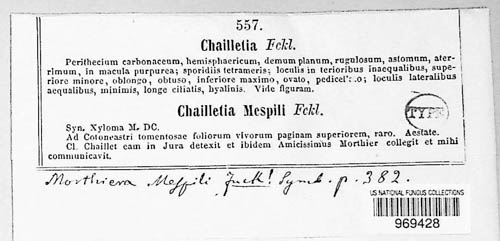 557.
Chailletia Fckl.
Perithecium carbonaceum, hemisphaericum, demum planum, rugulosum, astomum, ater-
rimum, in macula purpurea; sporidiis tetrameris; loculis in terioribus inaequalibus, supe-
riore minore, oblongo, obtuso, inferiore maximo, ovato, pedicel'::o; loculis lateralibus
aequalibus, minimis, longe ciliatis, hyalinis. Vide figuram.
Chailletia Mespili Fckl.
TYPE
Syn. Xyloma M. DC.
Ad Cotoneastri tomentosae foliorum vivorum paginam superiorem, raro. Aestate.
Cl. Chaillet eam in Jura detexit et ibidem Amicissimus Morthier collegit et mihi
communicavit.
Morthiera Mespili Fuck! Symb. p. 382.
US NATIONAL FUNGUS COLLECTIONS
969428